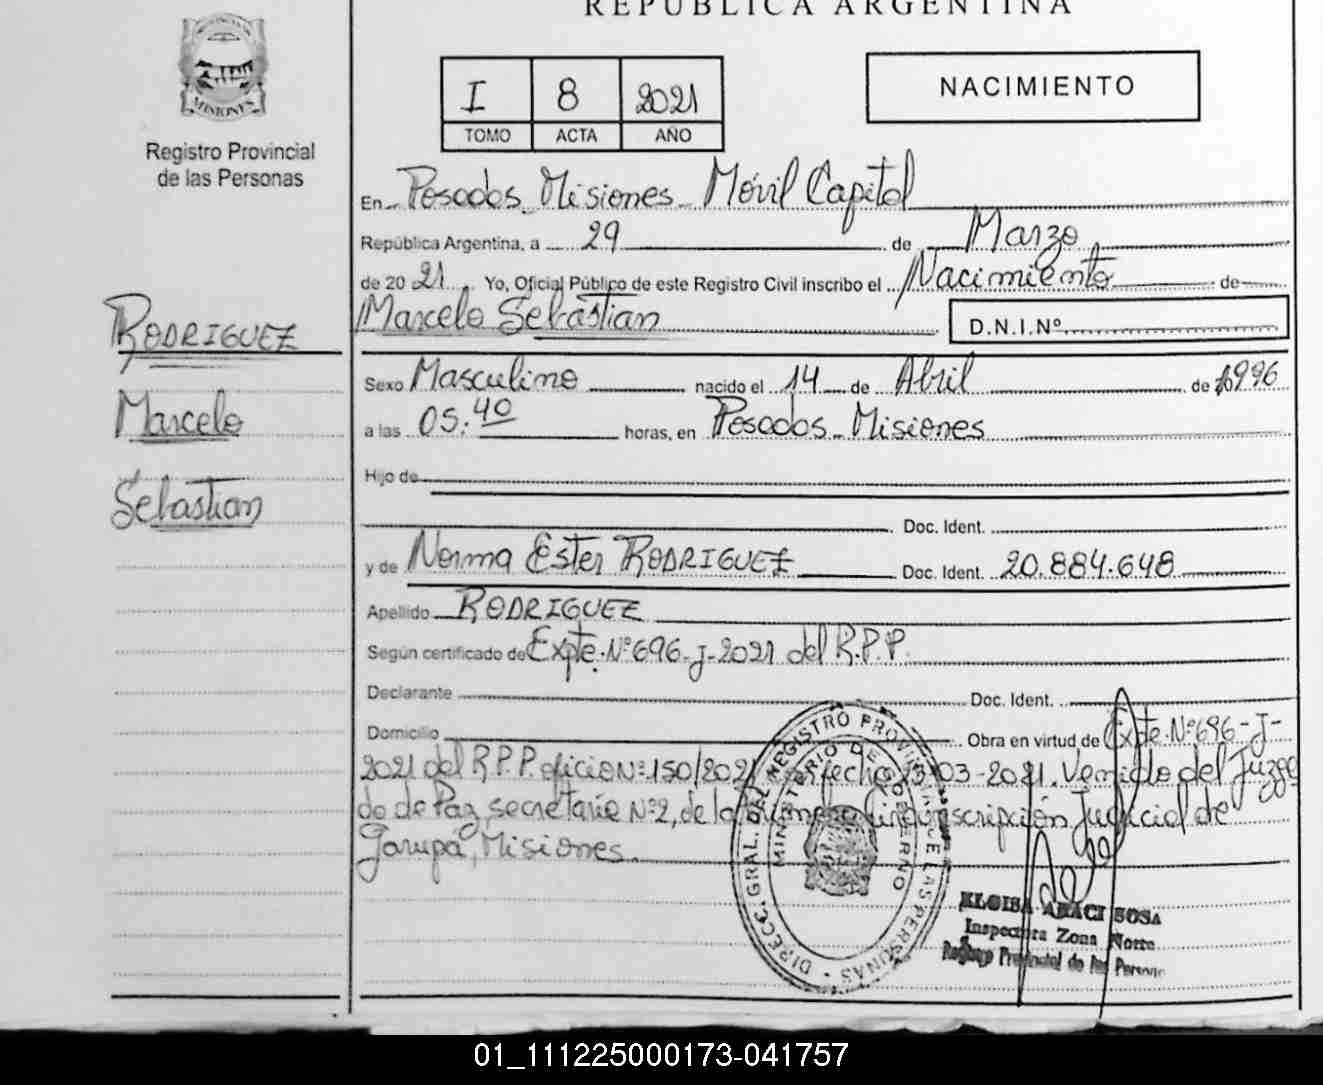 REPÚBLICA ARGENTINA
MISIONES
Registro Provincial
de las Personas
RODRIGUEZ
Marcelo
Sebastian
I 8 2021
TOMO ACTA AÑO
NACIMIENTO
En Posadas Misiones Móvil Capital
República Argentina, a 29 de Marzo
de 2021. Yo, Oficial Público de este Registro Civil inscribo el Nacimiento de
Marcelo Sebastian D.N.I.Nº
Sexo Masculino nacido el 14 de Abril de 1996
a las 05:40 horas, en Posadas Misiones
Hijo de
Doc. Ident.
y de Norma Ester RODRIGUEZ Doc. Ident. 20.884.648
Apellido RODRIGUEZ
Según certificado de Expte. Nº 696-J-2021 del R.P.P.
Declarante Doc. Ident.
Domicilio Obra en virtud de Expte Nº 696-J-
2021 del R.P.P. oficio Nº 150/2021 fecha 03-2021. Venido del Juzga
do de Paz, secretaría Nº2, de la primera Circunscripción Judicial de
Garupá, Misiones.
DIRECC. GRAL. DEL REGISTRO PROVINCIAL DE LAS PERSONAS
MINISTERIO DE GOBIERNO
ELOISA ARACI SOSA
Inspectora Zona Norte
Registro Provincial de las Personas
01_111225000173-041757